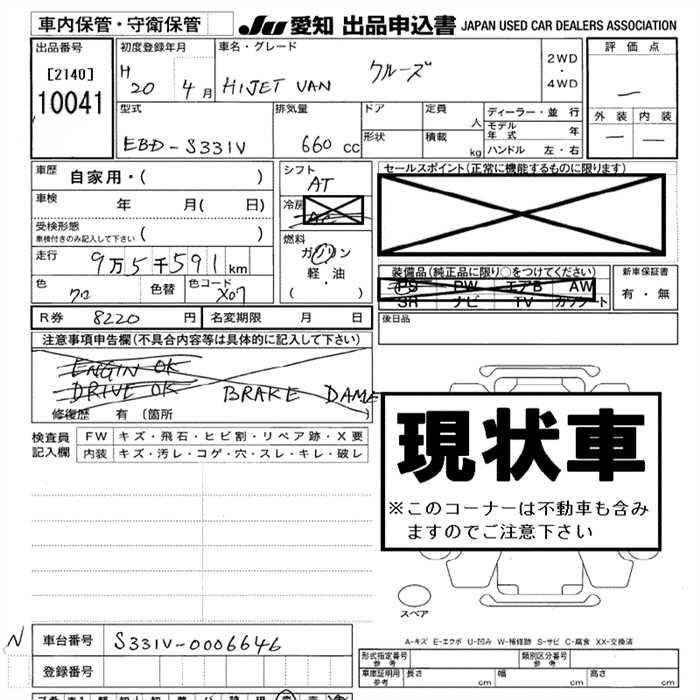 車内保管・守衛保管
JU 愛知 出品申込書 JAPAN USED CAR DEALERS ASSOCIATION
出品番号
[2140]
10041
初度登録年月
H 20 4月
車名・グレード
HIJET VAN クルーズ
2WD
・
4WD
評価点
—
外装 内装
— —
型式
EBD-S331V
排気量
660 cc
ドア
形状
定員
人
積載
kg
ディーラー・並行
モデル年式 年
ハンドル 左・右
車歴 自家用・( )
車検 年 月( 日)
受検形態
車検付きのみ記入して下さい ( )
走行 9万5千591km
色 クロ
色替
色コード X07
シフト
AT
冷房
AC
燃料
ガソリン
軽・油
( ・ )
セールスポイント(正常に機能するものに限ります)
装備品(純正品に限り〇をつけてください)
PS PW エアB AW
SR ナビ TV カワシート
新車保証書
有・無
R券 8220 円
名変期限 月 日
後日品
注意事項申告欄(不具合内容等は具体的に記入して下さい)
ENGIN OK
DRIVE OK
BRAKE DAME
修復歴 有 〔箇所
検査員
記入欄
FW キズ・飛石・ヒビ割・リペア跡・X要
内装 キズ・汚レ・コゲ・穴・スレ・キレ・破レ
現状車
※このコーナーは不動車も含み
ますのでご注意下さい
スペア
A-キズ E-エクボ U-凹み W-補修跡 S-サビ C-腐食 XX-交換済
N
車台番号 S331V-0006646
登録番号
形式指定番号
参考
類別区分番号
参考
車庫証明用
参考
長さ
cm
幅
cm
高さ
cm